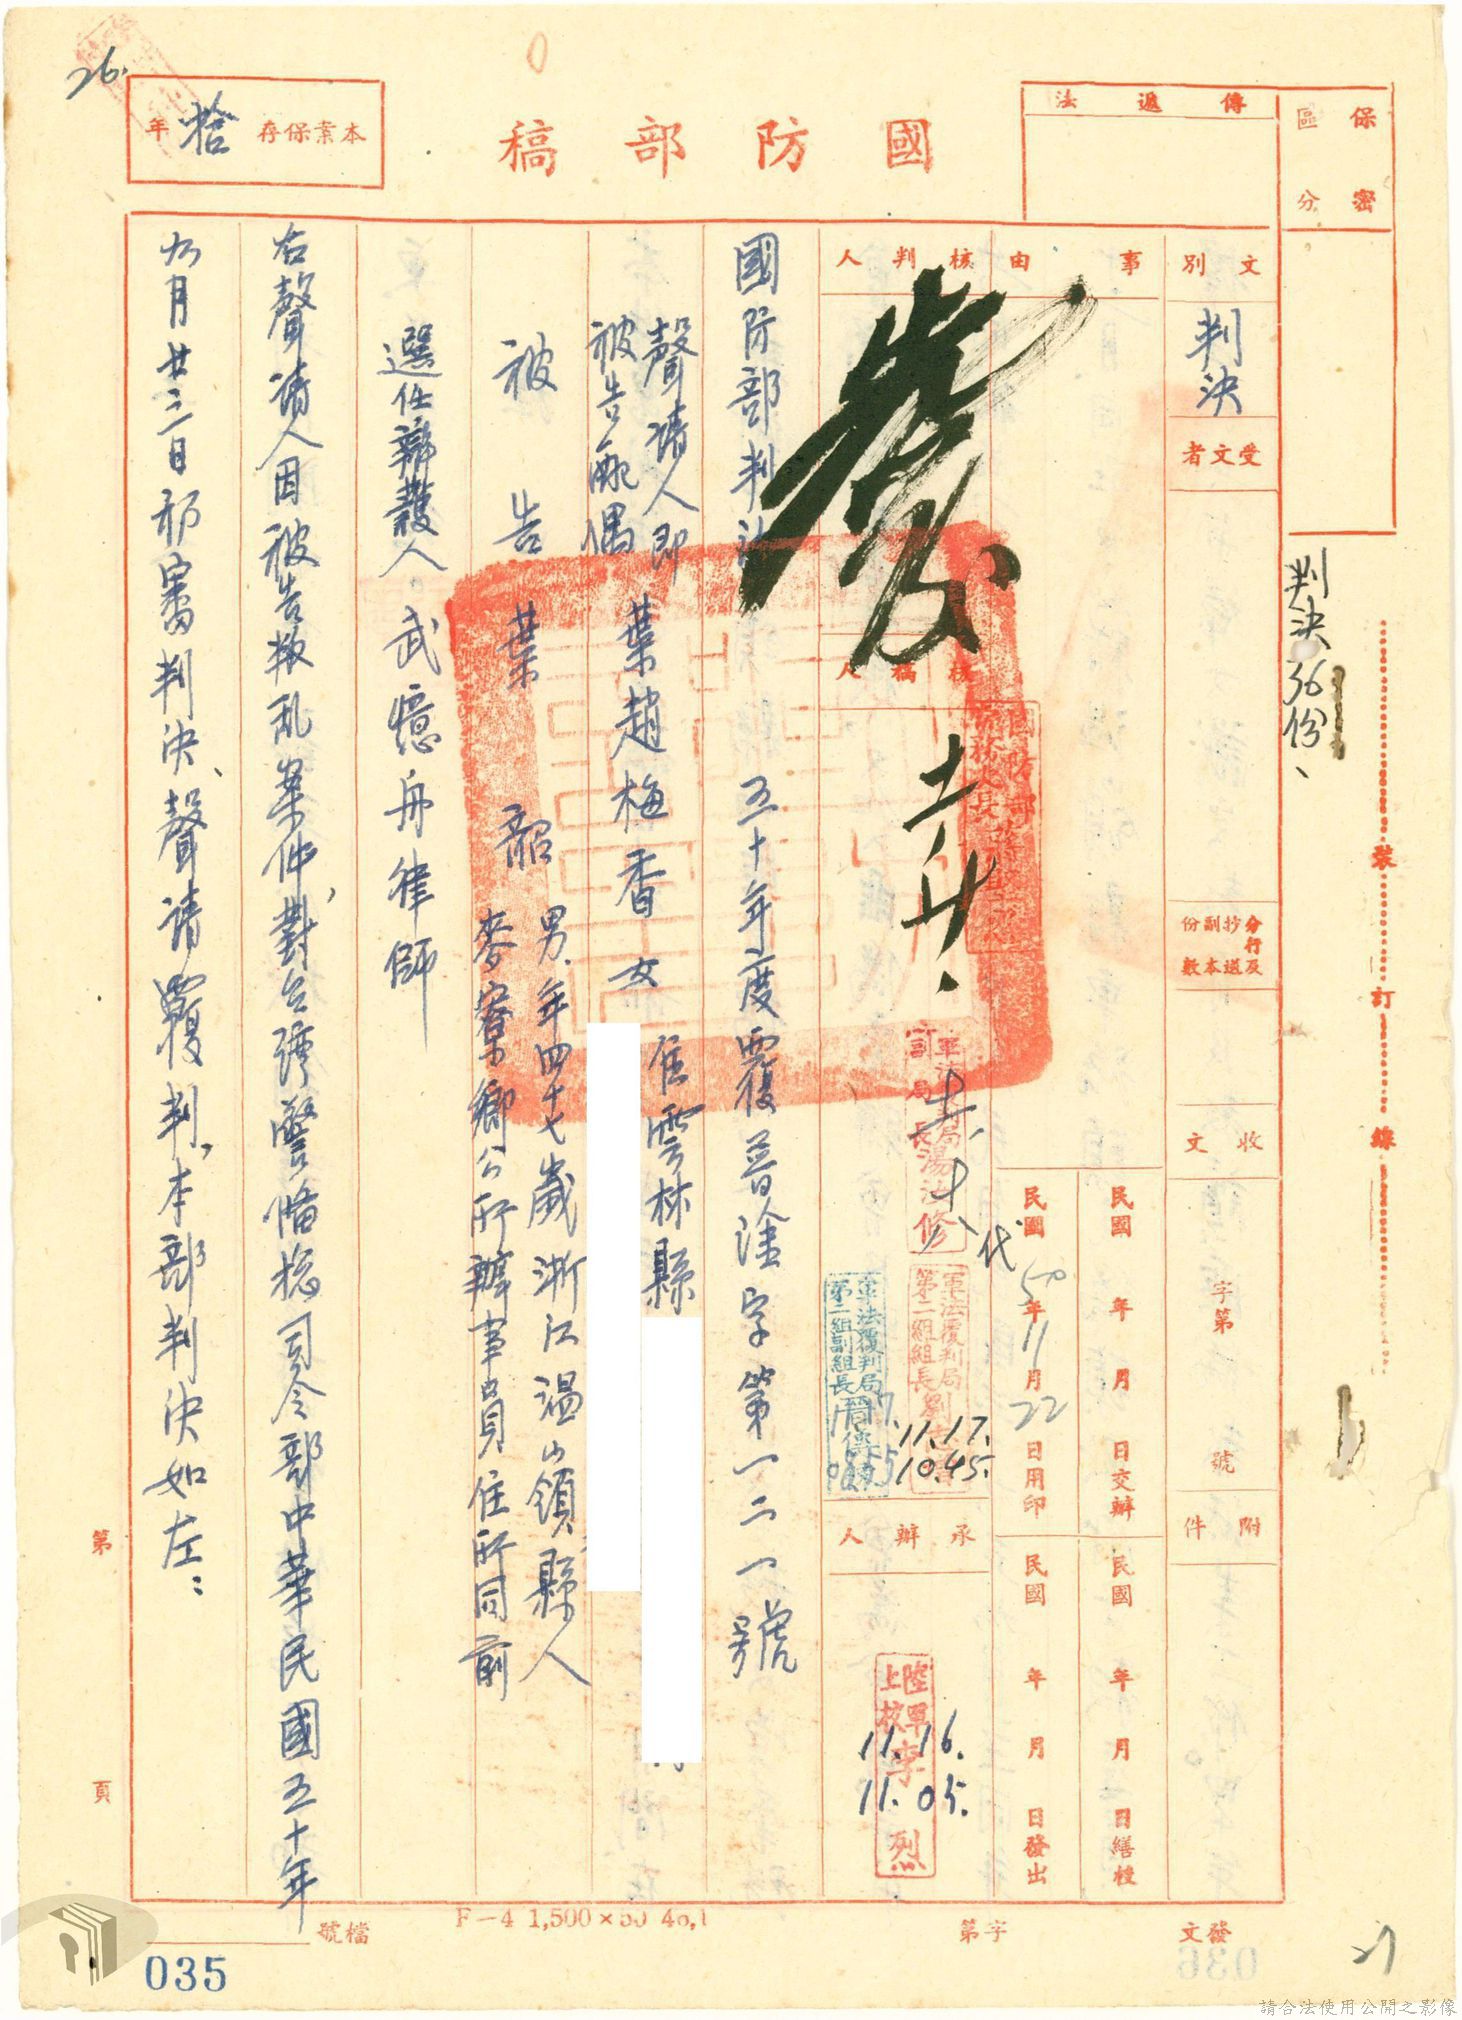 保密
區分
傳遞法
國防部稿
本案保存拾年
26.
文別
判決
受文者
分行及抄送副本份數
收文
字第
號
附件
事由
民國 年 月 日交辦
民國 年 月 日繕校
民國50年11月22日用印
民國 年 月 日發出
核判人
發
核稿人
軍法覆判局
副局長湯法修
代
軍法覆判局
第二組組長劉
11.17.
10.45.
軍法覆判局
第二組副組長
承辦人
陸軍上校李烈
11.16.
11.05.
判決36份、
裝訂線
國防部判決 五十年度覆普淦字第一二一號
聲請人即
被告配偶 葉趙梅香 女 住雲林縣
被告 葉韶 男、年四十七歲浙江溫嶺縣人
麥寮鄉公所辦事員住所同前
選任辯護人。武憶舟律師
右聲請人因被告叛乱案件，對台灣警備總司令部中華民國五十年
九月廿三日初審判決、聲請覆判，本部判決如左：
第 頁
檔號
F-4 1,500×50 46,1
字第
發文
035
036
27
請合法使用公開之影像